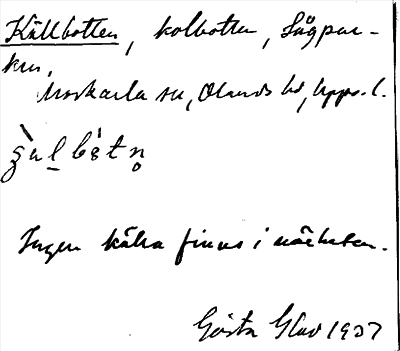 Källbotten, kolbotten, Sågpar-
ken,
Morkarla sn, Olands hd, Upps. l.
Ingen källa finns i närheten.
Gösta Glad 1937